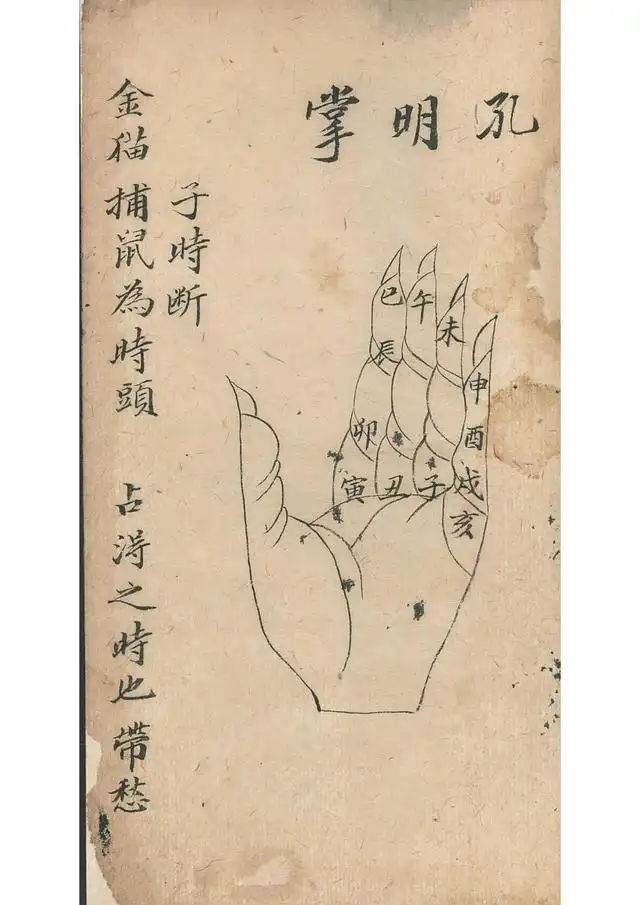 孔明掌
巳
午
未
申
辰
卯
酉
寅
丑
子
戌
亥
子時断
金猫捕鼠為時頭 占淂之時也帶愁